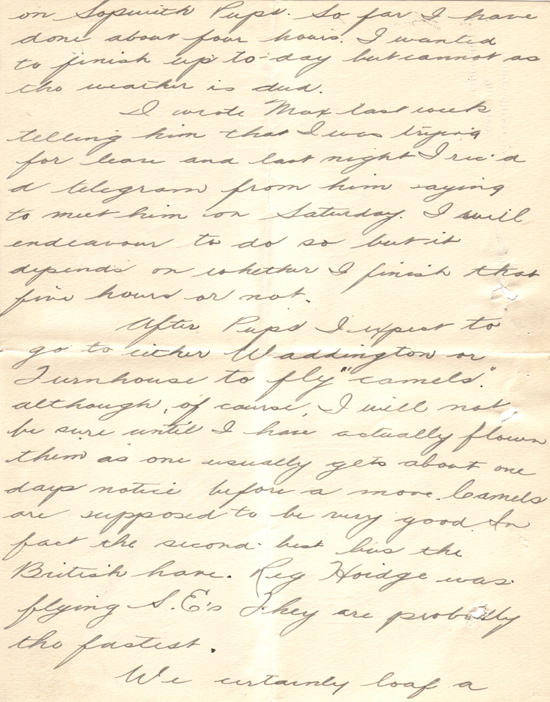 on Sopwith Pups. So far I have
done about four hours. I wanted
to finish up to-day but cannot as
the weather is dud.
I wrote Max last week
telling him that I was trying
for leave and last night I rec'd
a telegram from him saying
to meet him on Saturday. I will
endeavour to do so but it
depends on whether I finish that
five hours or not.
After Pups I expect to
go to either Waddington or
Turnhouse to fly "camels."
although, of course, I will not
be sure until I have actually flown
them as one usually gets about one
days notice before a move. Camels
are supposed to be very good. In
fact the second best bus the
British have. Reg Hoidge was
flying S.E's They are probably
the fastest.
We certainly loaf a